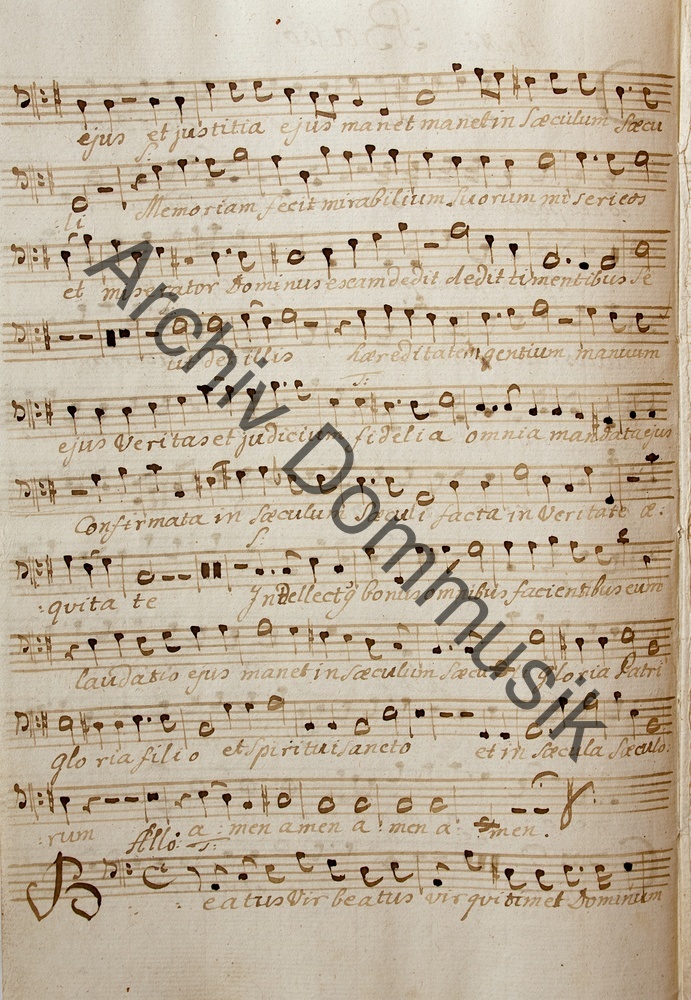 ejus et justitia ejus manet manet in Sæculum Sæcu
li Memoriam fecit mirabilium suorum misericos
et miserator Dominus escam dedit dedit timentibus se
illis hæreditatem gentium manuum
ejus Veritas et judicium fidelia omnia mandata ejus
Confirmata in Sæculum Sæculi facta in Veritate æ:
:quita te Intellectꝰ bonus omnibus facientibus eum
laudatio ejus manet in Sæculum Sæculi gloria Patri
glo ria filio et Spiritui Sancto et in Sæcula Sæculo:
:rum Allo: a: men amen a: men a: men.
Beatus Vir beatus vir qui timet Dominum
Archiv Dommusik